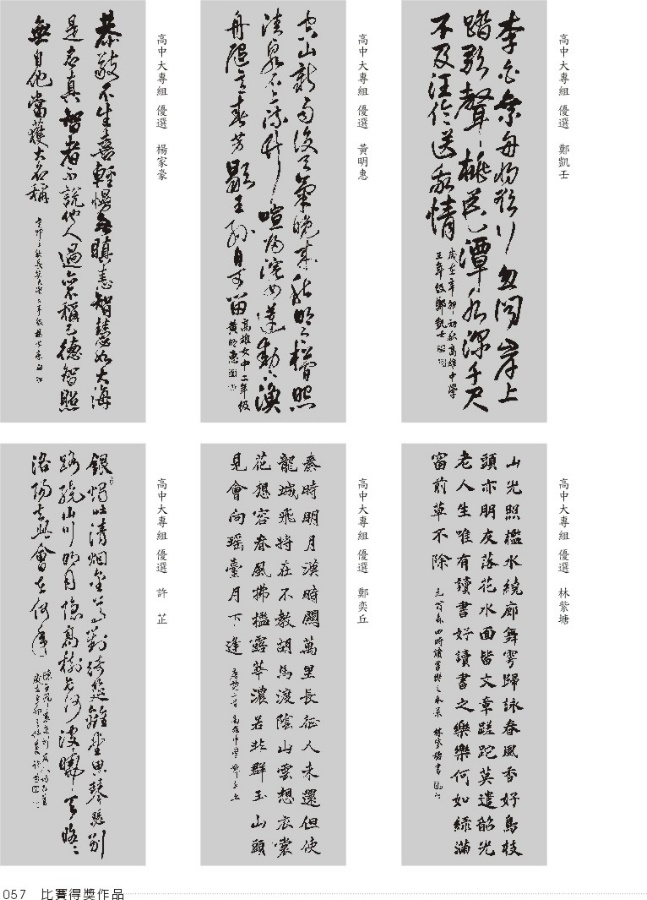 高中大專組 優選 鄭凱壬
李白乘舟將欲行忽聞岸上
踏歌聲桃花潭水深千尺
不及汪倫送我情
歲在辛卯初秋高雄中學
三年級鄭凱壬
高中大專組 優選 黃明惠
空山新雨後天氣晚來秋明月松間照
清泉石上流竹喧歸浣女蓮動下漁
舟隨意春芳歇王孫自可留
高雄女中二年級
黃明惠
高中大專組 優選 楊家豪
恭敬不生喜輕慢無瞋恚智慧如大海
是名真智者不說他人過亦不稱己德智照
無自他當獲大名稱
高中大專組 優選 林紫塘
山光照檻水繞廊舞雩歸詠春風香好鳥枝
頭亦朋友落花水面皆文章蹉跎莫遣韶光
老人生唯有讀書好讀書之樂樂何如綠滿
窗前草不除
高中大專組 優選 鄭奕丘
秦時明月漢時關萬里長征人未還但使
龍城飛將在不教胡馬渡陰山雲想衣裳
花想容春風拂檻露華濃若非群玉山頭
見會向瑤臺月下逢
高中大專組 優選 許芷
銀燭吐清烟金尊對綺筵離堂思琴瑟別
路繞山川明月隱高樹長河沒曉天悠悠
洛陽去此會在何年
057 比賽得獎作品